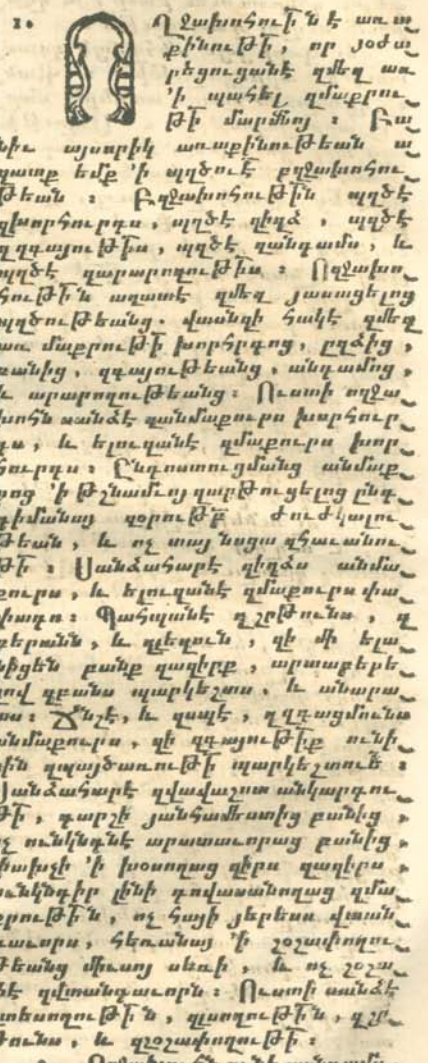 10 Ողջախոհութի՛ն է առա
քինութի, որ յօժա
րեցուցանէ զմեզ առ
'ի պահել զմաքրու
թի մարմնոյ : Բա
նիւ այսորիկ առաքինութեան ա
զատք եմք 'ի պղծուէ բղջախոհու
թեան : Բղջախոհութին պղծէ
զխորհուրդս, պղծէ զիղձ, պղծէ
զզգայութիս, պղծէ զանդամս, և
պղծէ զարարողութիս : Ողջախո
հութին ազատէ զմեզ յասացելոց
պղծութեանց. վասնզի հակէ զմեզ
առ մաքրութի խորհրդոց, ըղձից,
բանից, զգայութեանց, անդամոց,
և արարողութեանց : Ուստի ողջա
խոհն սանձէ զանմաքուրս խորհուր
դս, և ելուզանէ զմաքուրս խոր
հուրդս : Ընդոստուցմանց անմաք
րոց 'ի թշնամւոյ զարթուցելոց ընդ
դիմանայ զօրութք ժուժկալու
թեան, և ոչ տայ նոցա զհաւանու
թի : Սանձահարէ զիղձս անմա
քուրս, և ելուզանէ զմաքուրս փա
փագս : Պահպանէ զշրթունս, զ
բերանն, և զլեզուն, զի մի ելա
նիցեն բանք գազիրք, արտաբերե
լով զբանս պարկեշտս, և անարա
տս : Ճնշէ, և զսպէ, զզգացմունս
անմաքուրս, զի զգայութիք ունի
ցին զպայծառութի պարկեշտուե :
Սանձահարէ զվավաշոտ անկարգու
թի, գարշի յանհամեստից բանից,
ոչ ունկնդնէ արատաւորաց բանից,
փախչի 'ի խօսողաց զիրս գազիրս,
ունկնդիր լինի գովասանողաց զմա
քրութին, ոչ հայի յերեսս վտան
գաւորս, հեռանայ 'ի շօշափողու
թեանց միւսոյ սեռի, և ոչ շօշա
փէ զվտանգաւորն : Ուստի սանձէ
զտեսողութին, զլսողութին, զշր
թունս, և զշօշափողութի :